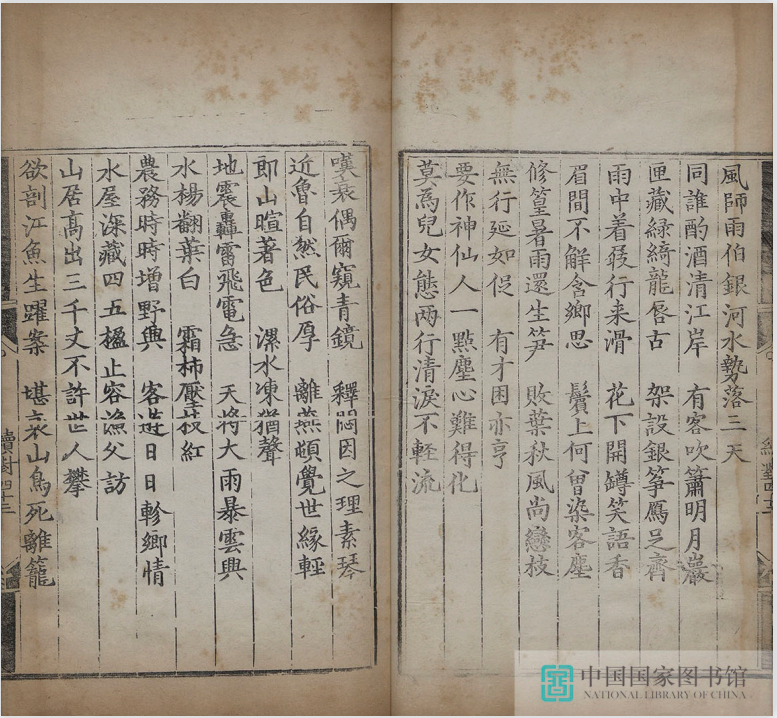 風師雨伯銀河水勢落三天
同誰酌酒清江岸　有客吹簫明月巖
匣藏綠綺龍唇古　架設銀箏鴈足齊
雨中着屐行来滑　花下開罇笑語香
眉間不解含鄉思　鬢上何曾染客塵
修篁暑雨還生笋　敗葉秋風尚戀枝
無行延如促　有才困亦亨
要作神仙人一點塵心難得化
莫爲兒女態两行清淚不輕流
嘆衰偶爾窺青鏡　釋悶因之理素琴
近魯自然民俗厚　離燕頗覺世緣輕
郎山暄著色　漯水凍猶聲
地震轟雷飛電急　天將大雨暴雲興
水楊翻葉白　霜柿壓枝紅
農務時時增野興　客遊日日軫鄉情
水屋深藏四五楹止容漁父訪
山居高出三千丈不許世人攀
欲剖江魚生躍案　堪哀山鳥死離籠
讀對四十三
中国国家图书馆
NATIONAL LIBRARY OF CHINA